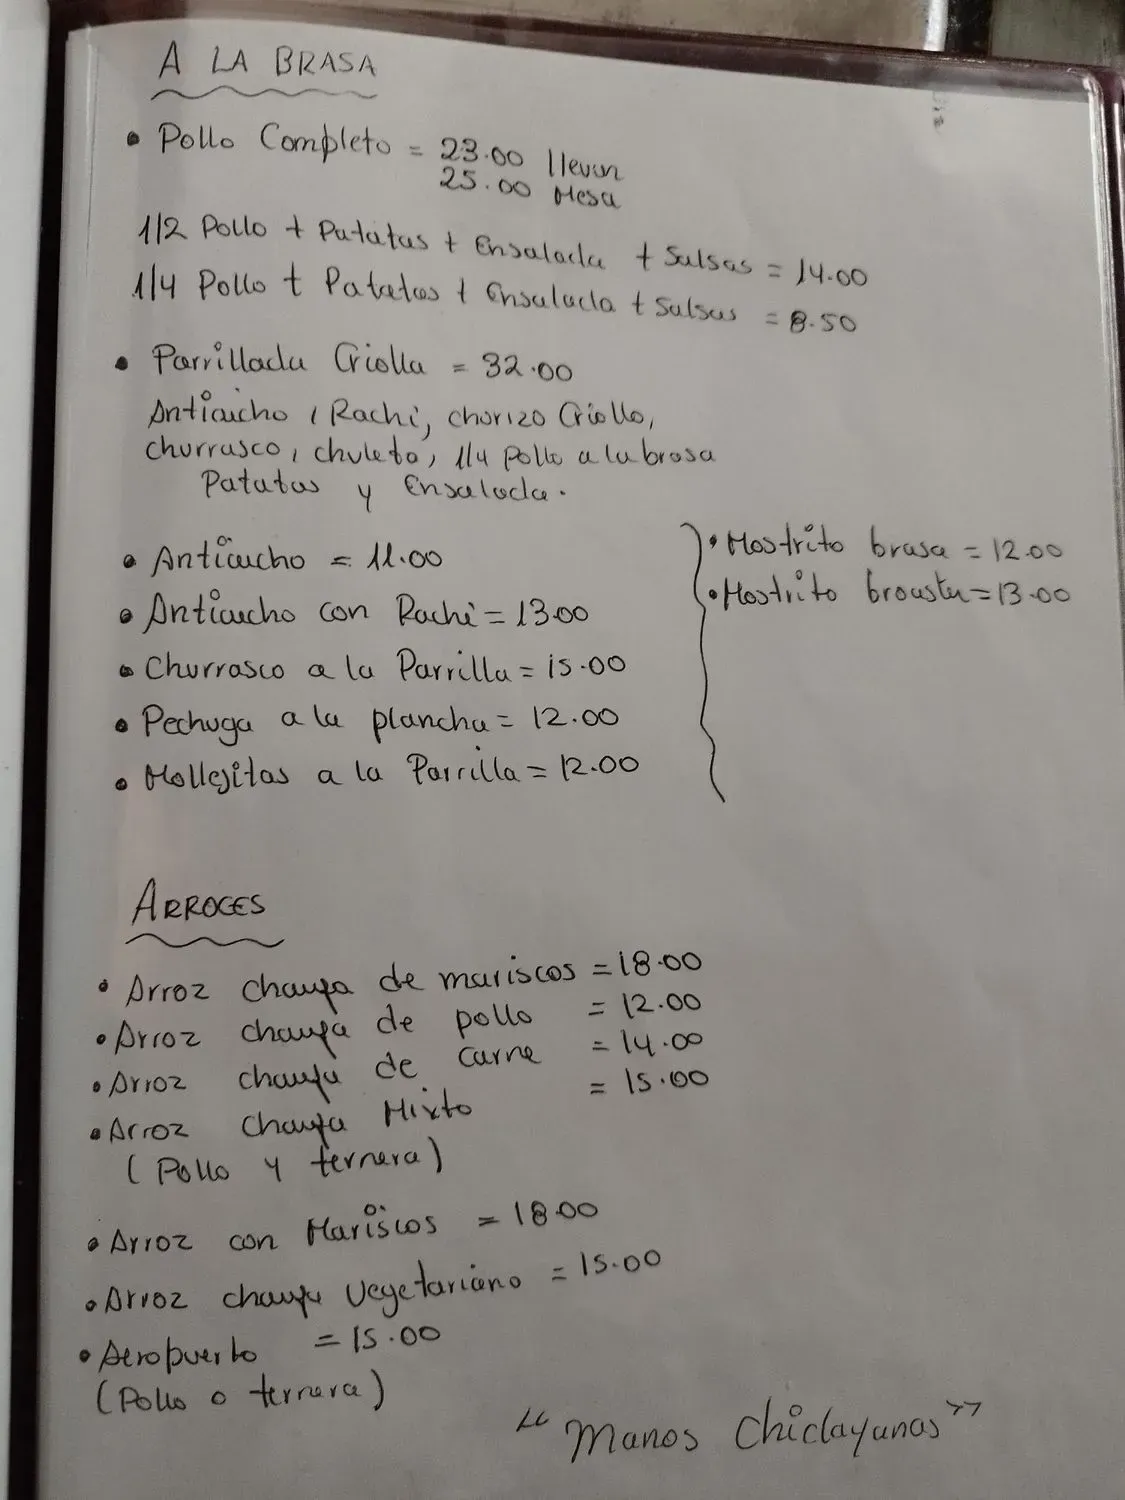 A LA BRASA
• Pollo Completo = 23.00 llevar
25.00 Mesa
1/2 Pollo + Patatas + Ensalada + Salsas = 14.00
1/4 Pollo + Patatas + Ensalada + Salsas = 8.50
• Parrillada Criolla = 32.00
Anticucho, Rachi, chorizo Criollo,
churrasco, chuleta, 1/4 Pollo a la brasa
Patatas y Ensalada.
• Anticucho = 11.00
• Anticucho con Rachi = 13.00
• Churrasco a la Parrilla = 15.00
• Pechuga a la plancha = 12.00
• Mollejitas a la Parrilla = 12.00
• Mostrito brasa = 12.00
• Mostrito brouster = 13.00
ARROCES
• Arroz chaufa de mariscos = 18.00
• Arroz chaufa de pollo = 12.00
• Arroz chaufa de carne = 14.00
• Arroz chaufa Mixto = 15.00
(Pollo y ternera)
• Arroz con Mariscos = 18.00
• Arroz chaufa Vegetariano = 15.00
• Aeropuerto = 15.00
(Pollo o ternera)
"Manos Chiclayanas"